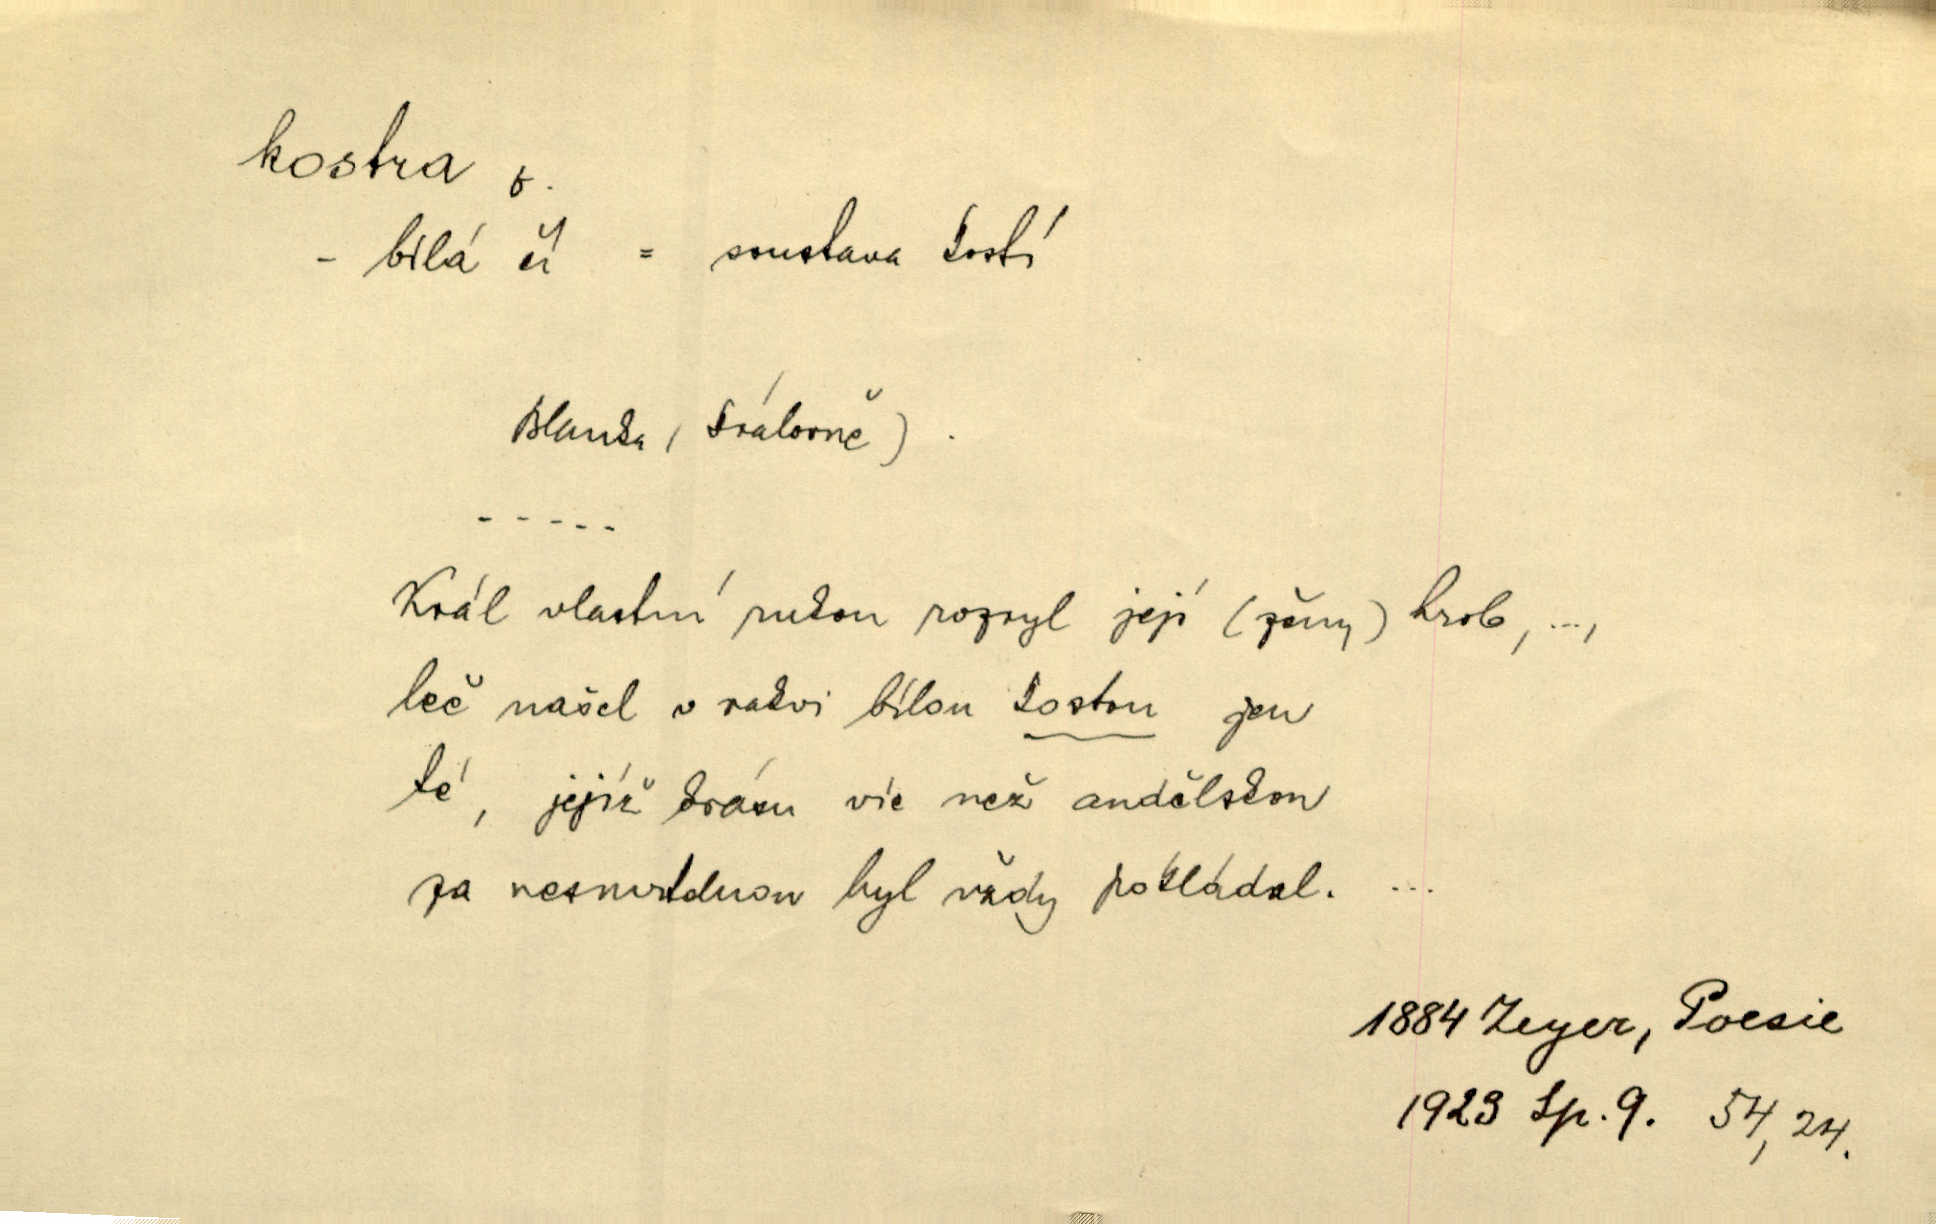 kostra f.
- bílá čí = soustava kostí
Blanka (královně).
- - - - -
Král vlastní rukou rozryl její (ženy) hrob, ...,
leč našel v rakvi bílou kostru jen
té, jejíž krásu víc než andělskou
za nesmrtelnou byl vždy pokládal. ...
1884 Zeyer, Poesie
1923 Sp. 9. 54, 24.